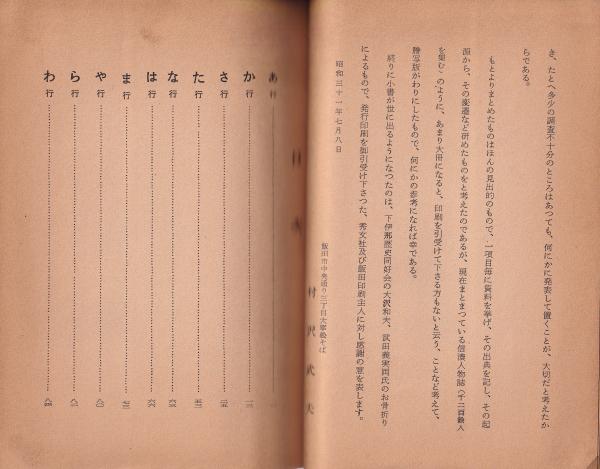 き、たとへ多少の調査不十分のところはあつても、何にかに発表して置くことが、大切だと考えたか
らである。
もとよりまとめたものはほんの見出的のもので、一項目毎に資料を挙げ、その出典を記し、その起
源から、その変遷など研めたものをと考えたのであるが、現在まとまつている信濃人物誌(千二百余人
を集む)のように、あまり大冊になると、印刷を引受けて下さる方もないと云う、ことなど考えて、
謄写版がわりにしたもので、何にかの参考になれば幸である。
終りに小書が世に出るようになつたのは、下伊那歴史同好会の大沢和夫、武田義実両氏のお骨折り
によるもので、発行印刷を御引受け下さつた、秀文社及び飯田印刷主人に対し感謝の意を表します。
昭和三十一年七月八日
飯田市中央通り三丁目大
村沢武夫
目次
あ行
か行
さ行
た行
な行
は行
ま行
や行
ら行
わ行